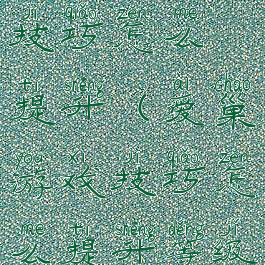 jì qiǎo zěn me
技巧怎么
tí shēng ài cháo
提升（爱巢
yóu xì jì qiǎo zěn
游戏技巧怎
me tí shēng děng jí
么提升等级